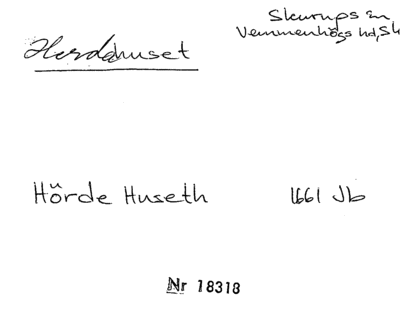 Skurups sn
Vemmenhögs hd, Sk
Herdahuset
Hörde Huseth 1661 Jb
Nr 18318